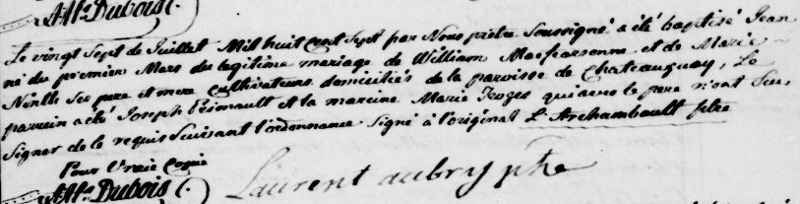 Atte Dubois C.
Le vingt Sept de Juillet Mil huit cent Sept par Nous pretre Soussigné a été baptisé Jean
né du premier Mars du legitime mariage de William Macfarsonne et de Marie
Ninlle Ses pere et mere Cultivateurs domiciliés de la paroisse de Chateauguay, Le
parrein a été Joseph Primault et la mareine Marie Roges qui avec le pere n'ont Seu
Signer de le requis Suivant l'ordonnance Signé à l'original L Archambault ptre
Pour Vraie Copie
Atte Dubois C. Laurent aubry ptre